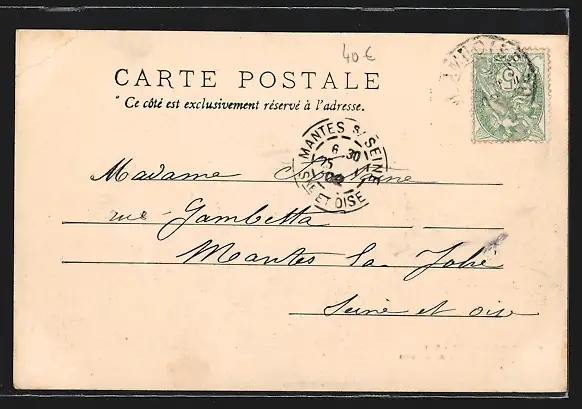 40 €
CARTE POSTALE
Ce côté est exclusivement réservé à l'adresse.
5
MANTES S/ SEINE
6 30
25
SNE ET OISE
Madame
rue Gambetta
Mantes la Jolie
Seine et oise